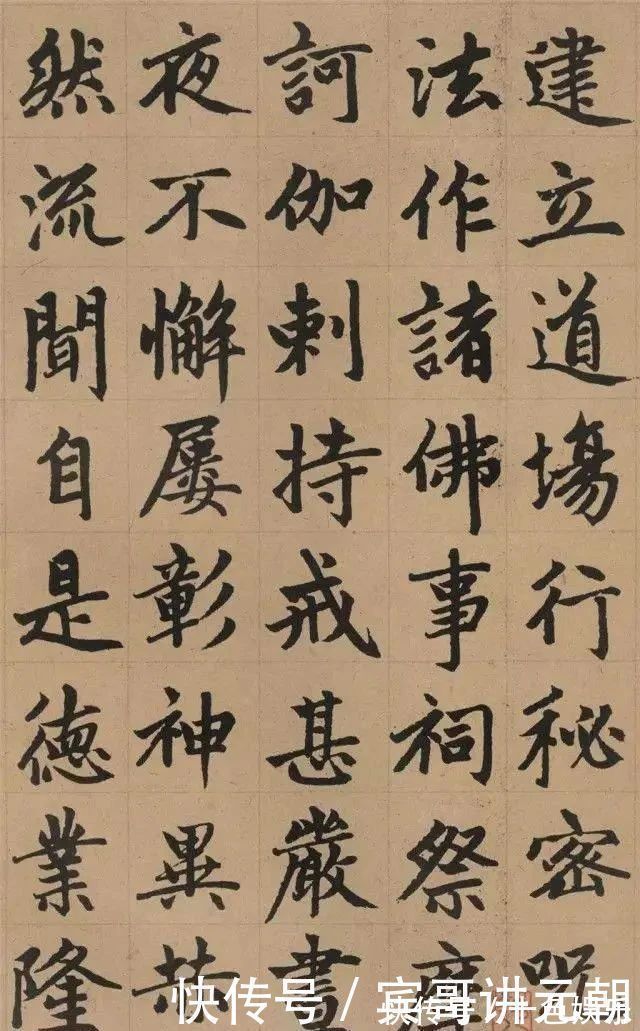 建立道場行秘密呪
法作諸佛事祠祭摩
訶伽剌持戒甚嚴晝
夜不懈屢彰神異赫
然流聞自是德業隆
快传号 / 宾哥讲元朝